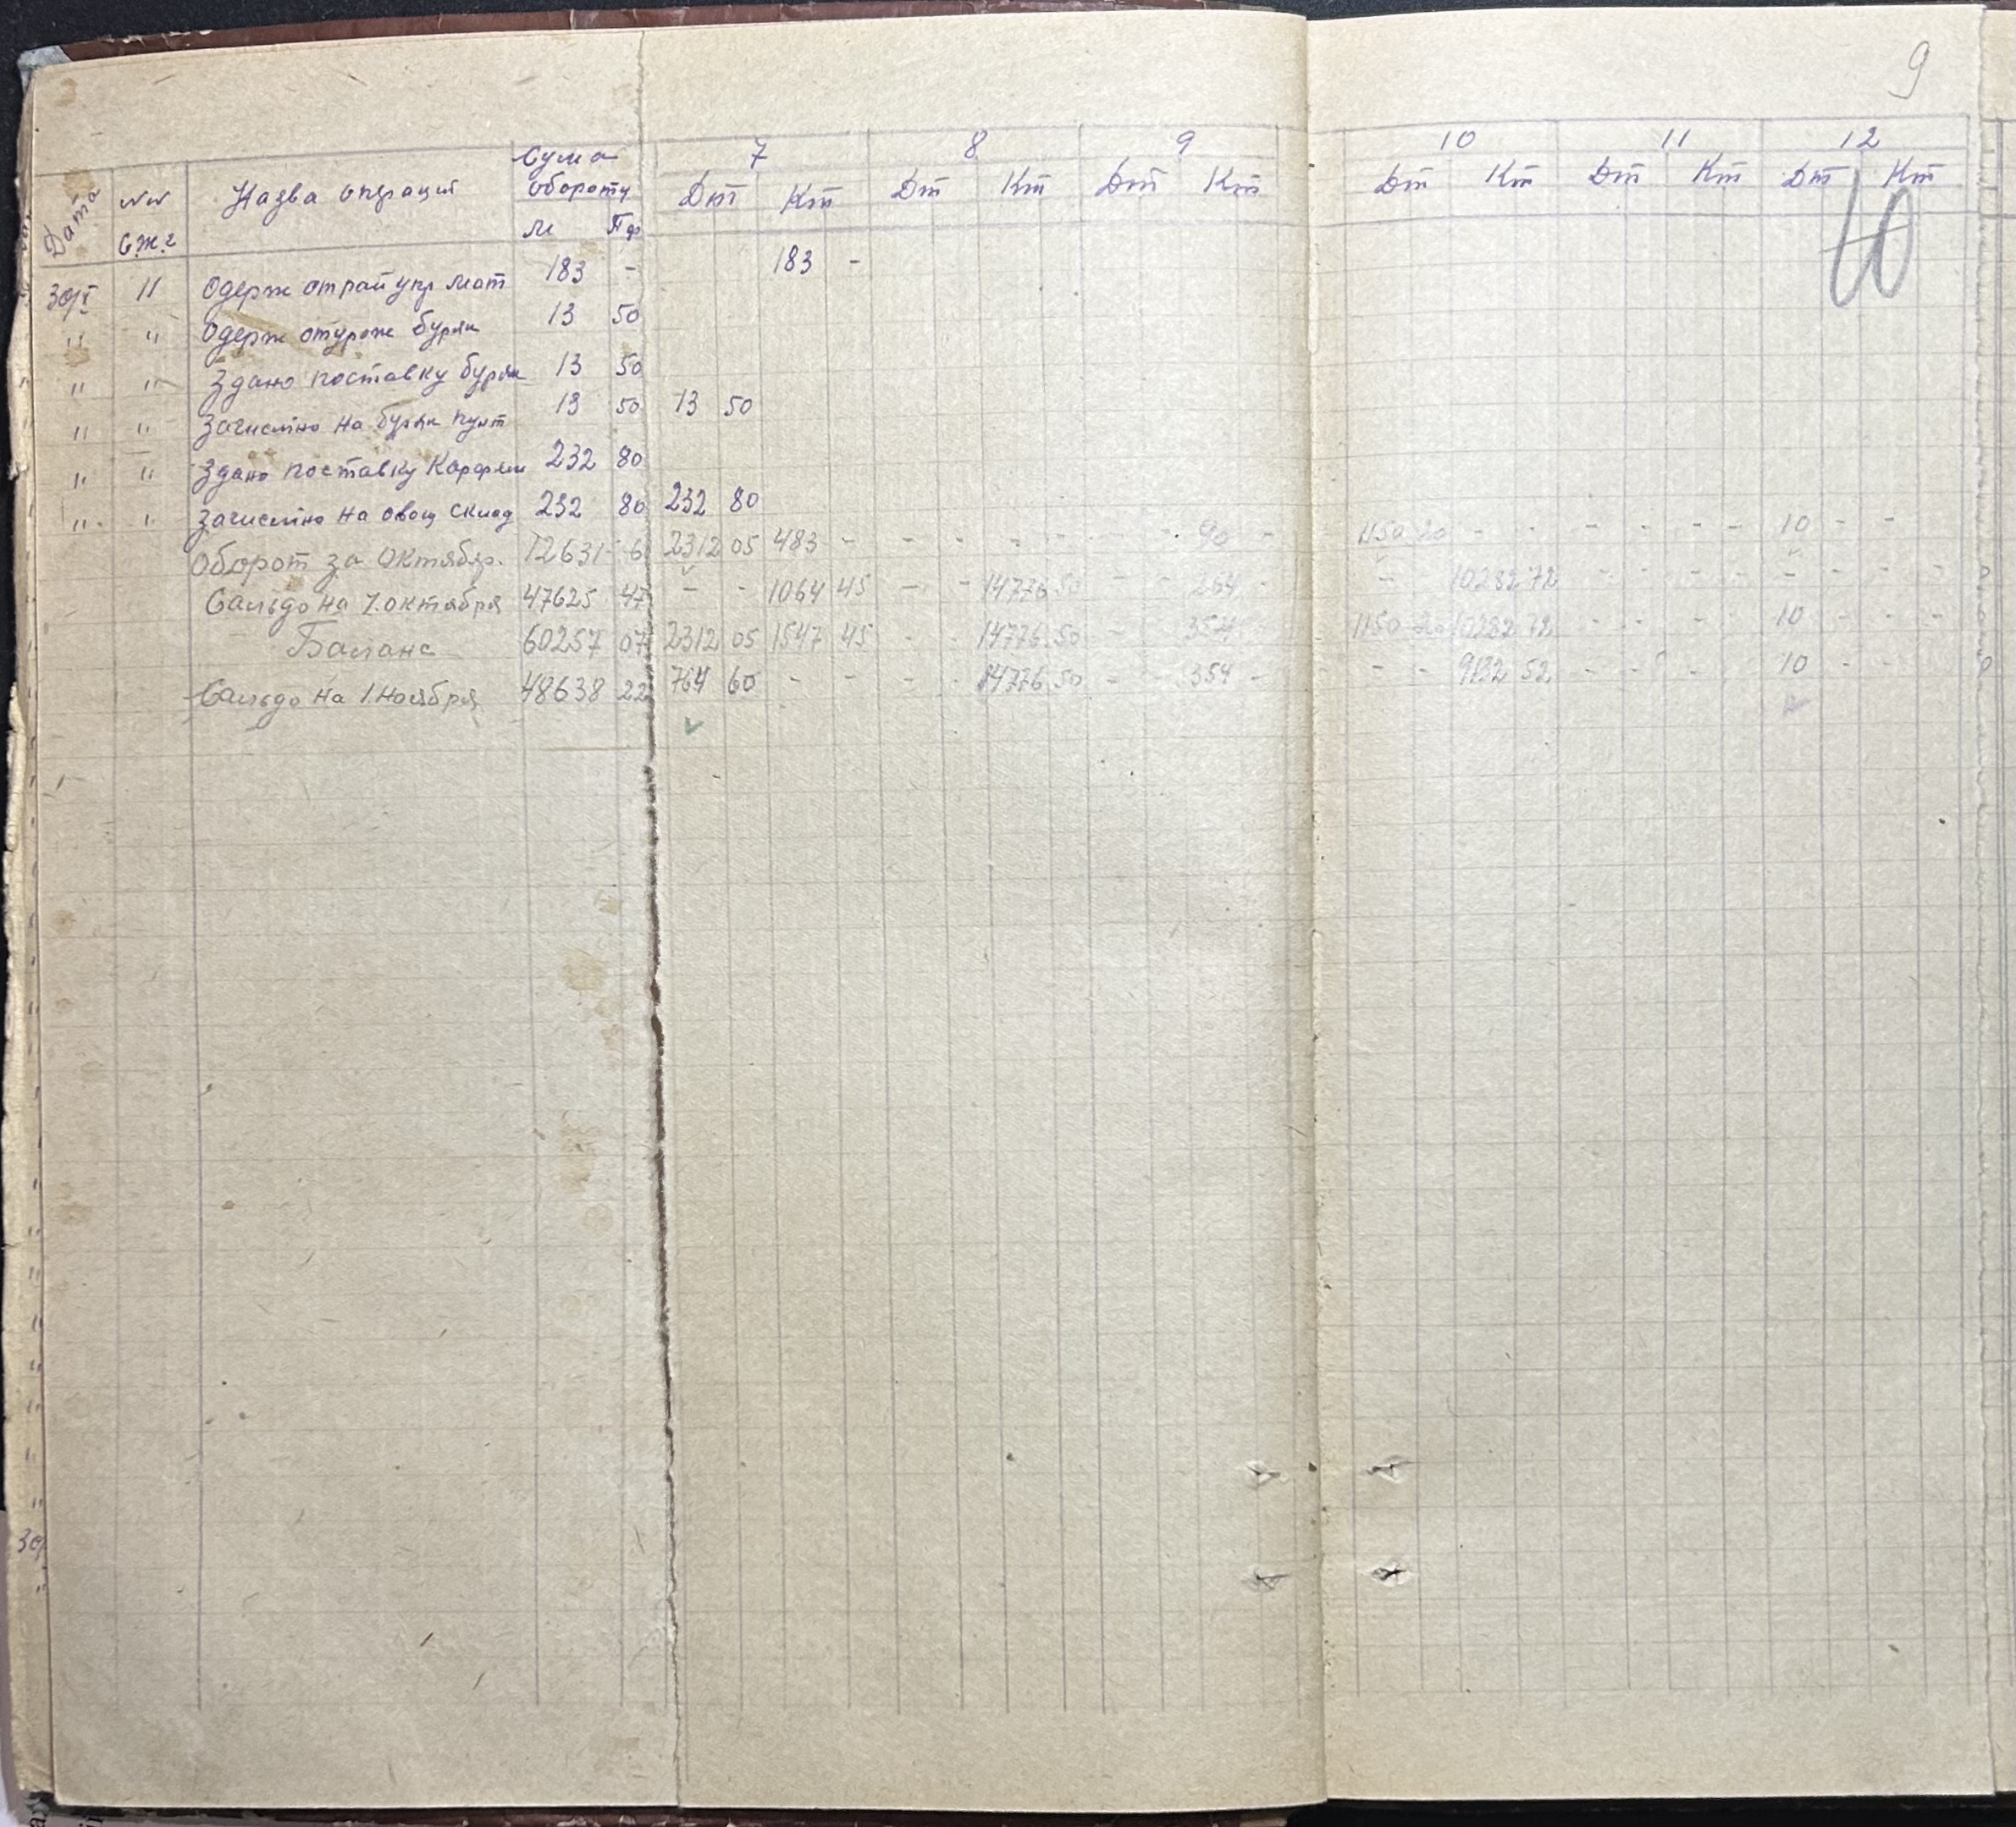 9
10
Дата
NN
с.ж.г
Назва операций
Сума
обороту
М Пф
7 8 9 10 11 12
Дт Кт Дт Кт Дт Кт Дт Кт Дт Кт Дт Кт
30/X 11 183 - 183 -
" " Одерж буряк 13 50
" " Здано поставку буряк 13 50
" " Зачислено на буряк пункт 13 50 13 50
" " Здано поставку 232 80
" " Зачислено на овощ склад 232 80 232 80
Оборот за октябр. 12631 6 2312 05 483 - - - - - - - 90 - 1150 20 - - - - - - 10 - -
Сальдо на 1. октября 47625 47 - - 1064 45 - - 14776 50 - - 264 - - 10282 72 - - - - - - - -
Баланс 60257 07 2312 05 1547 45 - 14776 50 - 354 1150 20 10282 72 - - - - 10 - - -
Сальдо на 1 ноября 48638 22 764 60 - - - - 14776 50 - - 354 - - - 9132 52 - - - 10 - -